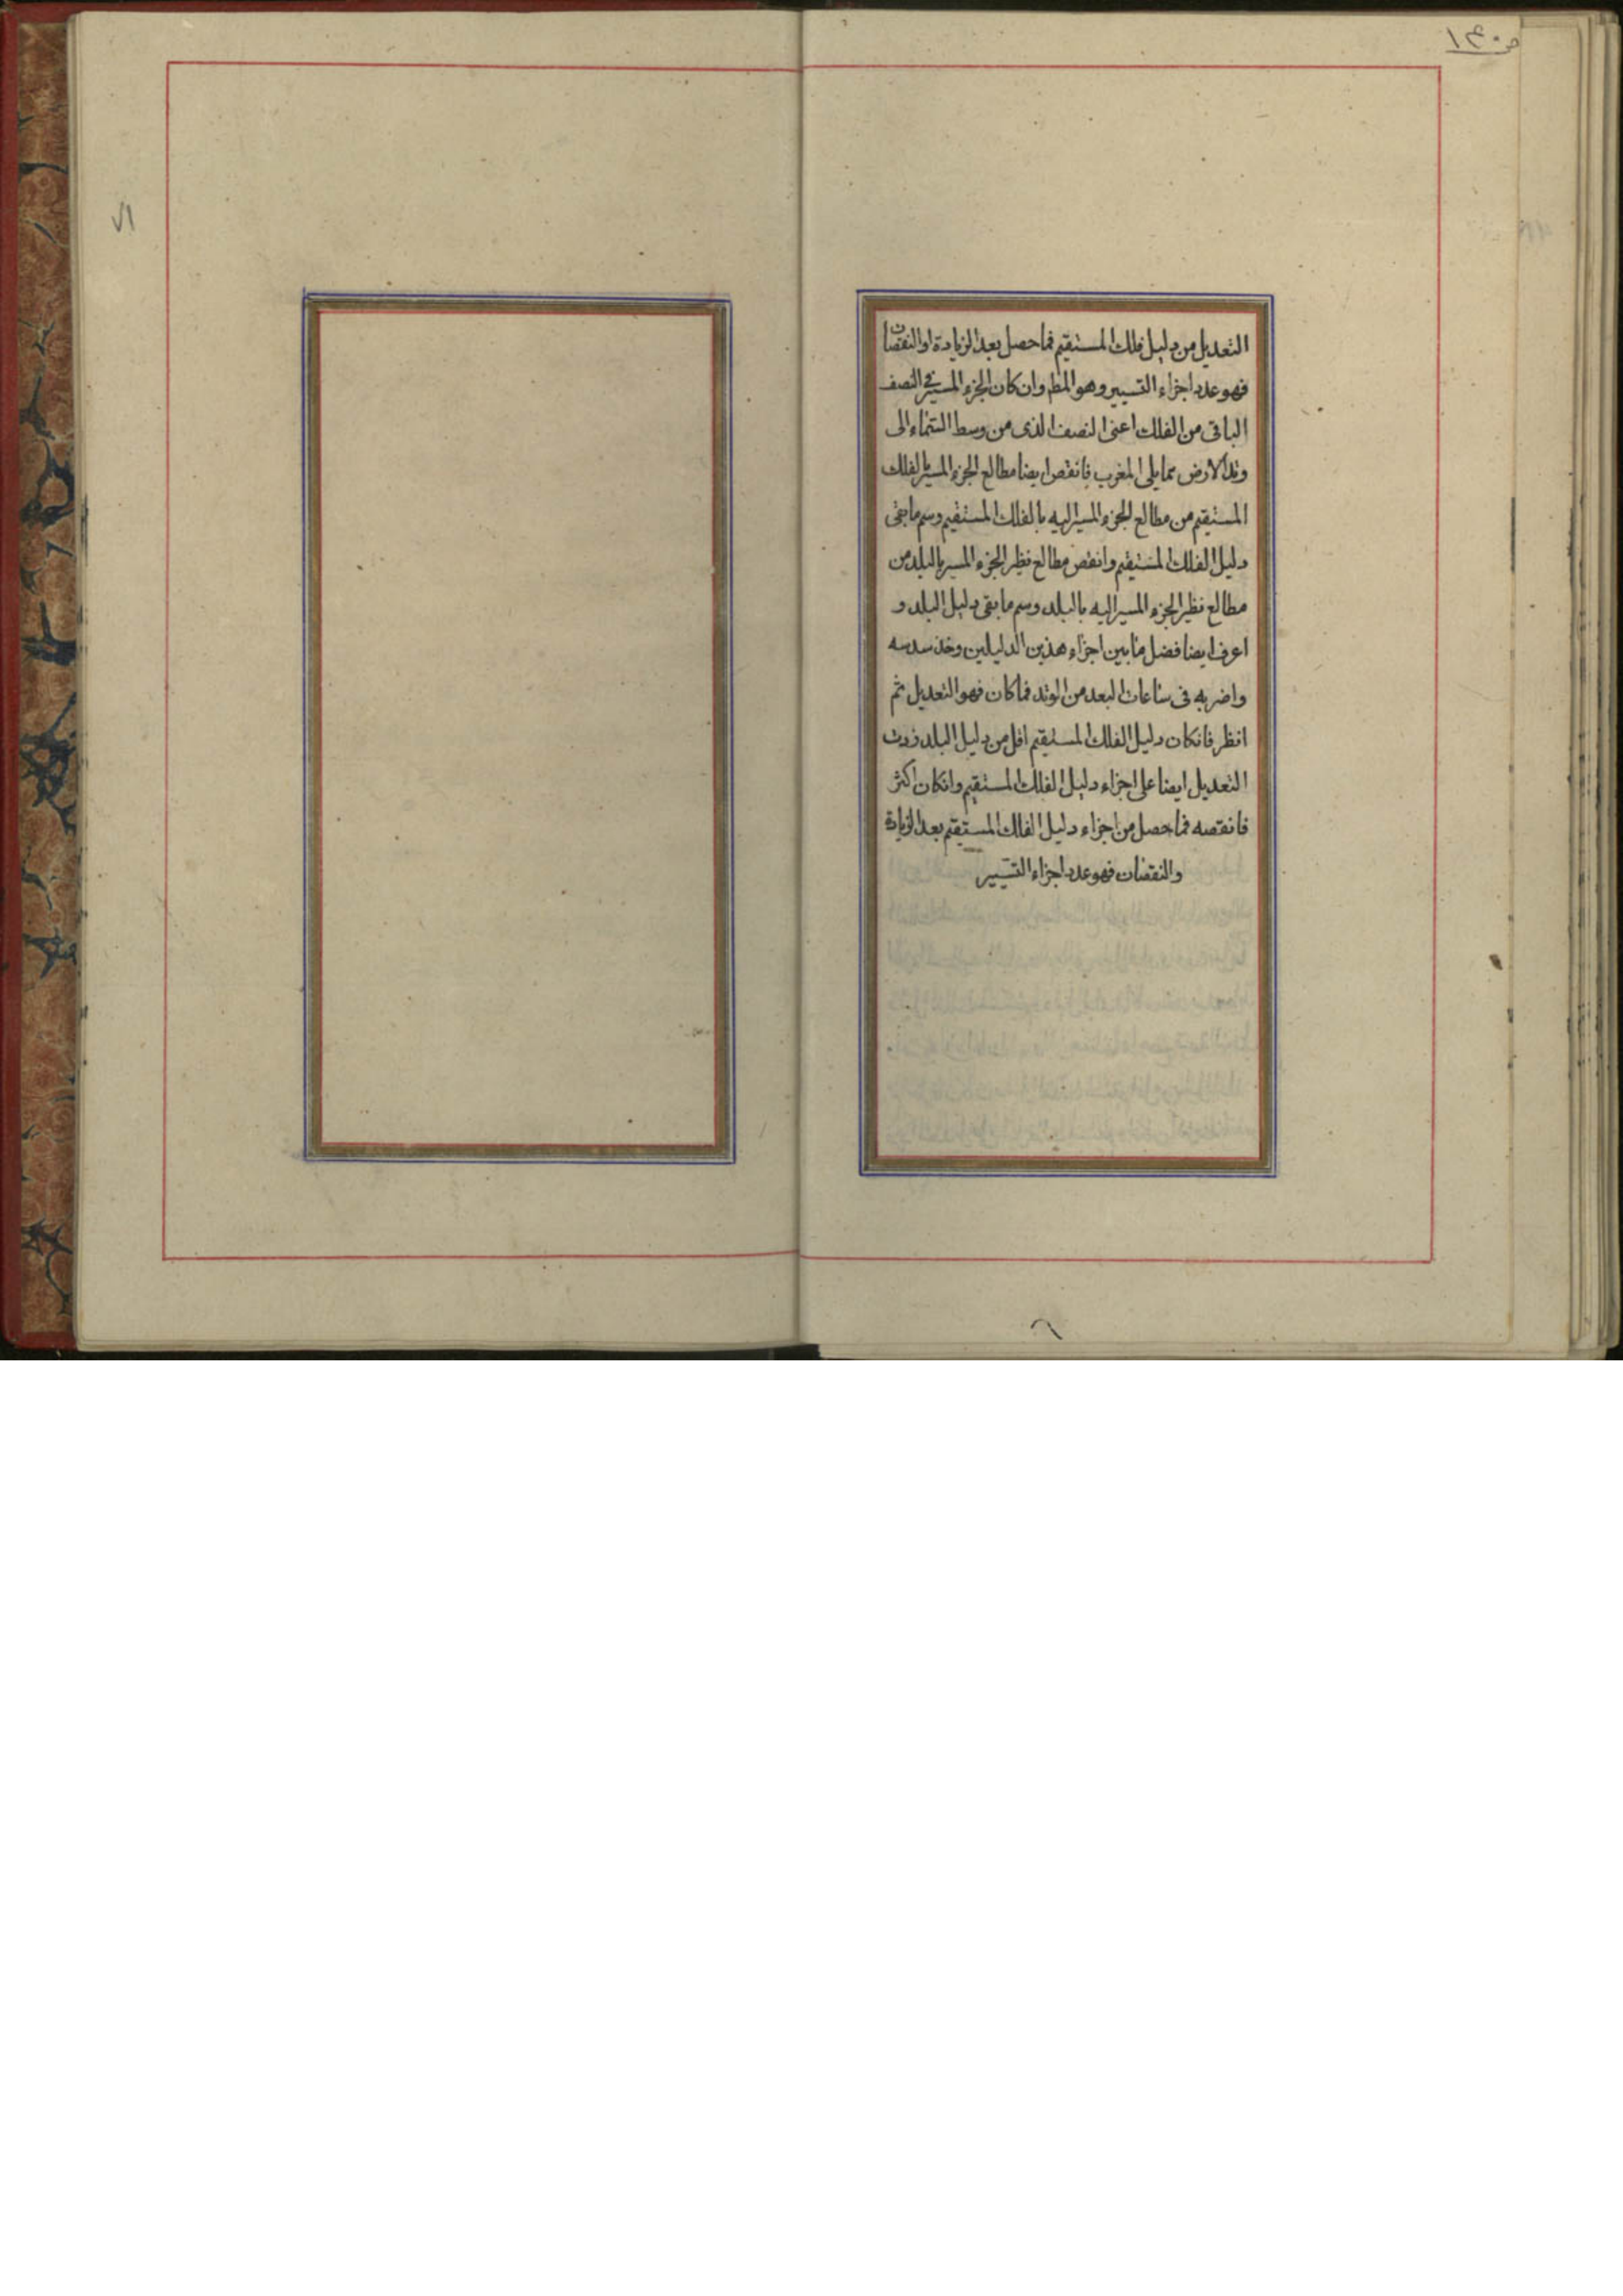 التعديل من دليل فلك المستقيم فما حصل بعد الزيادة او النقصان
فهو عدد اجزاء التسيير وهو المط وان كان الجزء المسير في النصف
الباقي من الفلك اعني النصف الذي من وسط السماء الى
وتد الارض مما يلي المغرب فانقص ايضا مطالع الجزء المسير بالفلك
المستقيم من مطالع الجزء المسير اليه بالفلك المستقيم وسم ما بقى
دليل الفلك المستقيم وانقص مطالع نظير الجزء المسير بالبلد من
مطالع نظير الجزء المسير اليه بالبلد وسم ما بقى دليل البلد و
اعرف ايضا فضل ما بين اجزاء هذين الدليلين وخذ سدسه
واضربه فى ساعات البعد من الوتد فما كان فهو التعديل ثم
انظر فانكان دليل الفلك المستقيم اقل من دليل البلد زدت
التعديل ايضا على اجزاء دليل الفلك المستقيم وانكان اكثر
فانقصه فما حصل من اجزاء دليل الفلك المستقيم بعد الزيادة
والنقصان فهو عدد اجزاء التسيير
٧١